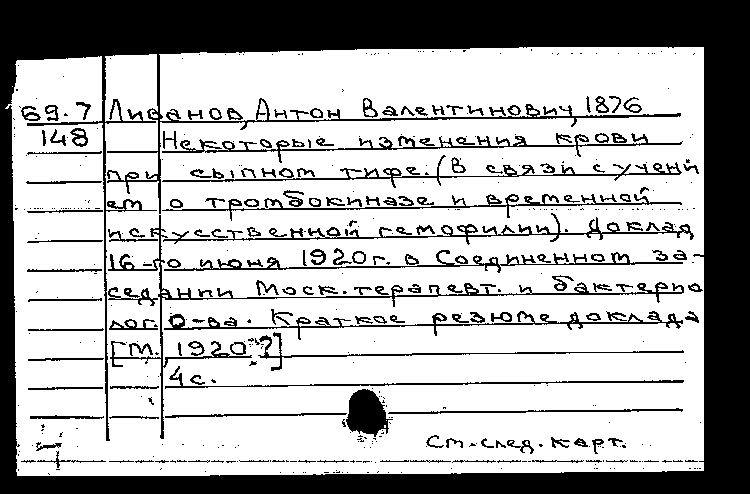 69.7 Ливанов, Антон Валентинович, 1876
148 Некоторые изменения крови
при сыпном тифе. (В связи с учени
ем о тромбокиназе и временной
искусственной гемофилии). Доклад
16-го июня 1920г. в Соединенном за-
седании Моск. терапевт. и бактерио
лог. О-ва. Краткое резюме доклада
[М., 1920?]
4 с.
См. след. карт.